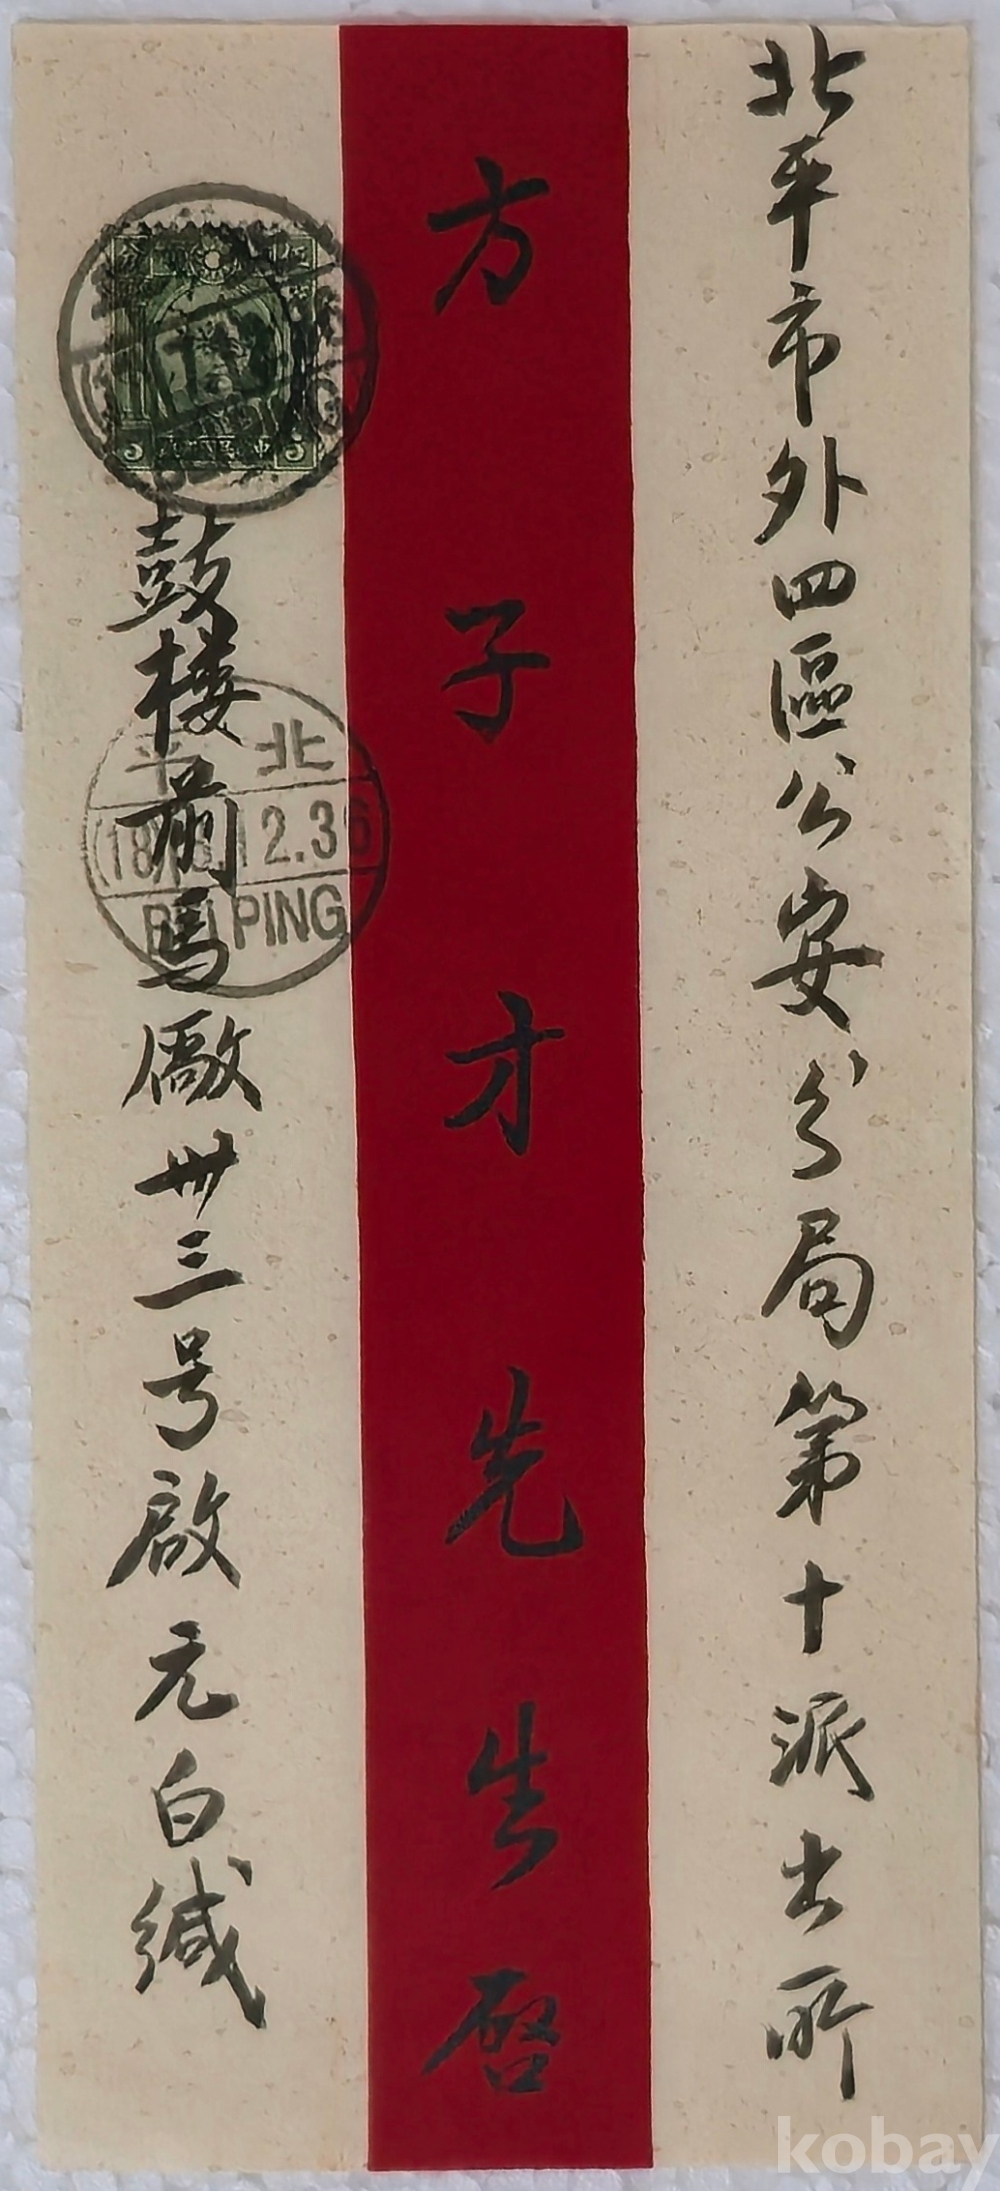 北平市外四區公安分局第十派出所
方子才先生啓
鼓楼前馬廠卅三号啟元白缄
5 5
北平
18 12.36
PEIPING
kobay